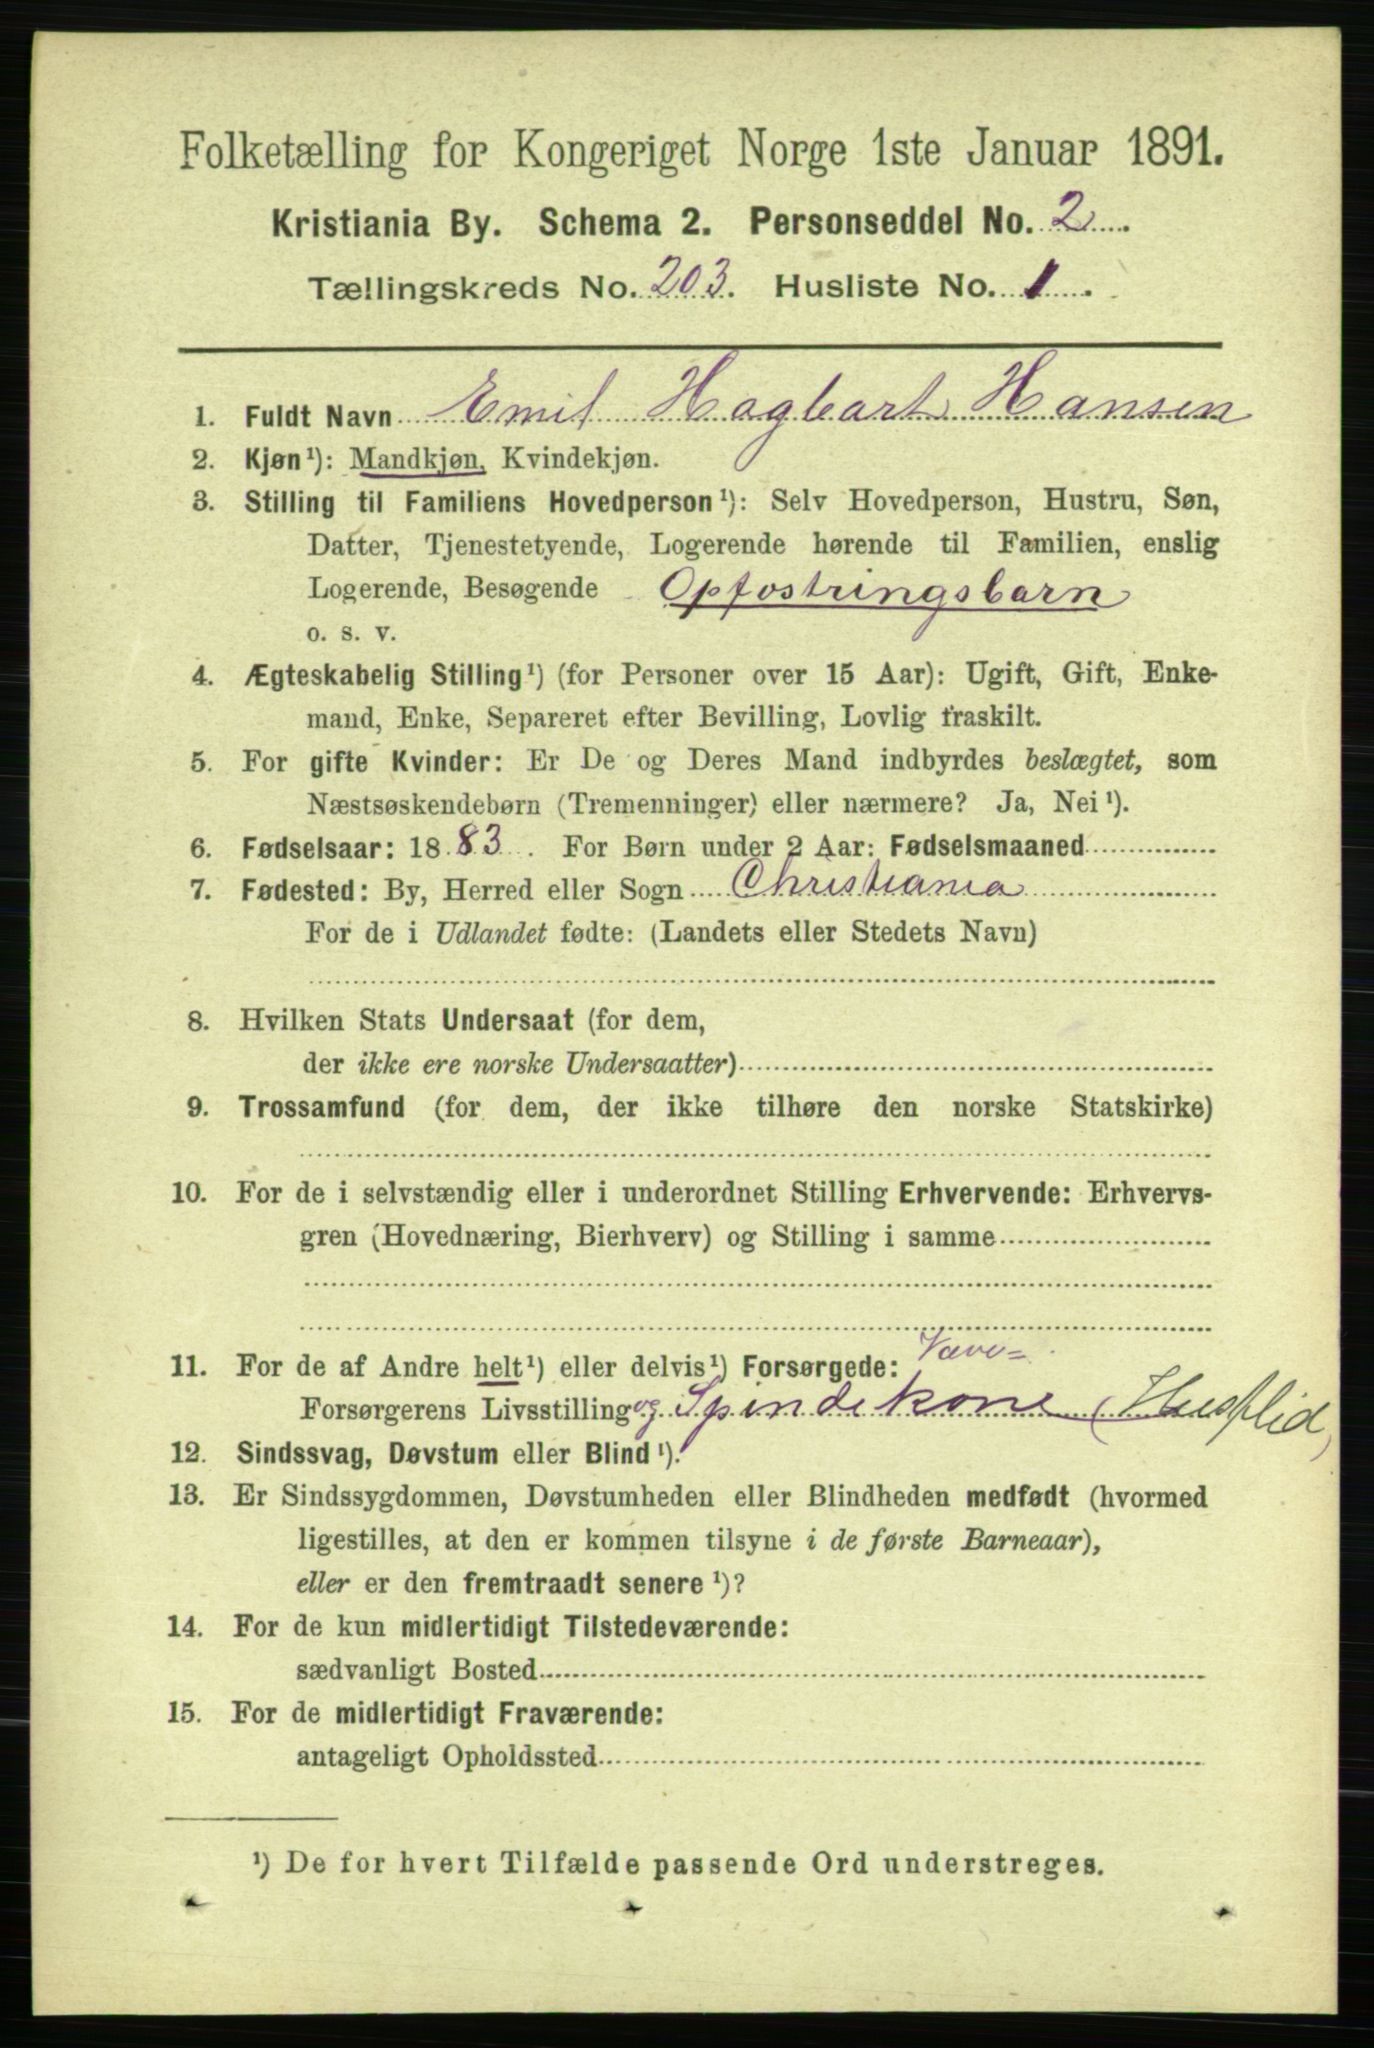 Folketælling for Kongeriget Norge 1ste Januar 1891.
Kristiania By. Schema 2. Personseddel No. 2.
Tællingskreds No. 203. Husliste No. 1.
1. Fuldt Navn Emil Hagbart Hansen
2. Kjøn¹): Mandkjøn, Kvindekjøn.
3. Stilling til Familiens Hovedperson¹): Selv Hovedperson, Hustru, Søn,
Datter, Tjenestetyende, Logerende hørende til Familien, enslig
Logerende, Besøgende Opfostringsbarn
o. s. v.
4. Ægteskabelig Stilling¹) (for Personer over 15 Aar): Ugift, Gift, Enke-
mand, Enke, Separeret efter Bevilling, Lovlig fraskilt.
5. For gifte Kvinder: Er De og Deres Mand indbyrdes beslægtet, som
Næstsøskendebørn (Tremenninger) eller nærmere? Ja, Nei¹).
6. Fødselsaar: 1883. For Børn under 2 Aar: Fødselsmaaned
7. Fødested: By, Herred eller Sogn Christiania
For de i Udlandet fødte: (Landets eller Stedets Navn)
8. Hvilken Stats Undersaat (for dem,
der ikke ere norske Undersaatter)
9. Trossamfund (for dem, der ikke tilhøre den norske Statskirke)
10. For de i selvstændig eller i underordnet Stilling Erhvervende: Erhvervs-
gren (Hovednæring, Bierhverv) og Stilling i samme
11. For de af Andre helt¹) eller delvis¹) Forsørgede: Væve=
Forsørgerens Livsstilling og Spindekone (Husflid)
12. Sindssvag, Døvstum eller Blind¹).
13. Er Sindssygdommen, Døvstumheden eller Blindheden medfødt (hvormed
ligestilles, at den er kommen tilsyne i de første Barneaar),
eller er den fremtraadt senere¹)?
14. For de kun midlertidigt Tilstedeværende:
sædvanligt Bosted
15. For de midlertidigt Fraværende:
antageligt Opholdssted
¹) De for hvert Tilfælde passende Ord understreges.